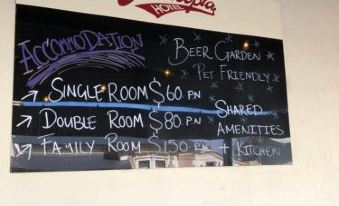 HOTEL
ACCOMMODATION
BEER GARDEN
PET FRIENDLY
→ SINGLE ROOM $60 PN
→ DOUBLE ROOM $80 PN
→ FAMILY ROOM $150 PN
SHARED
AMENITIES
+ KITCHEN